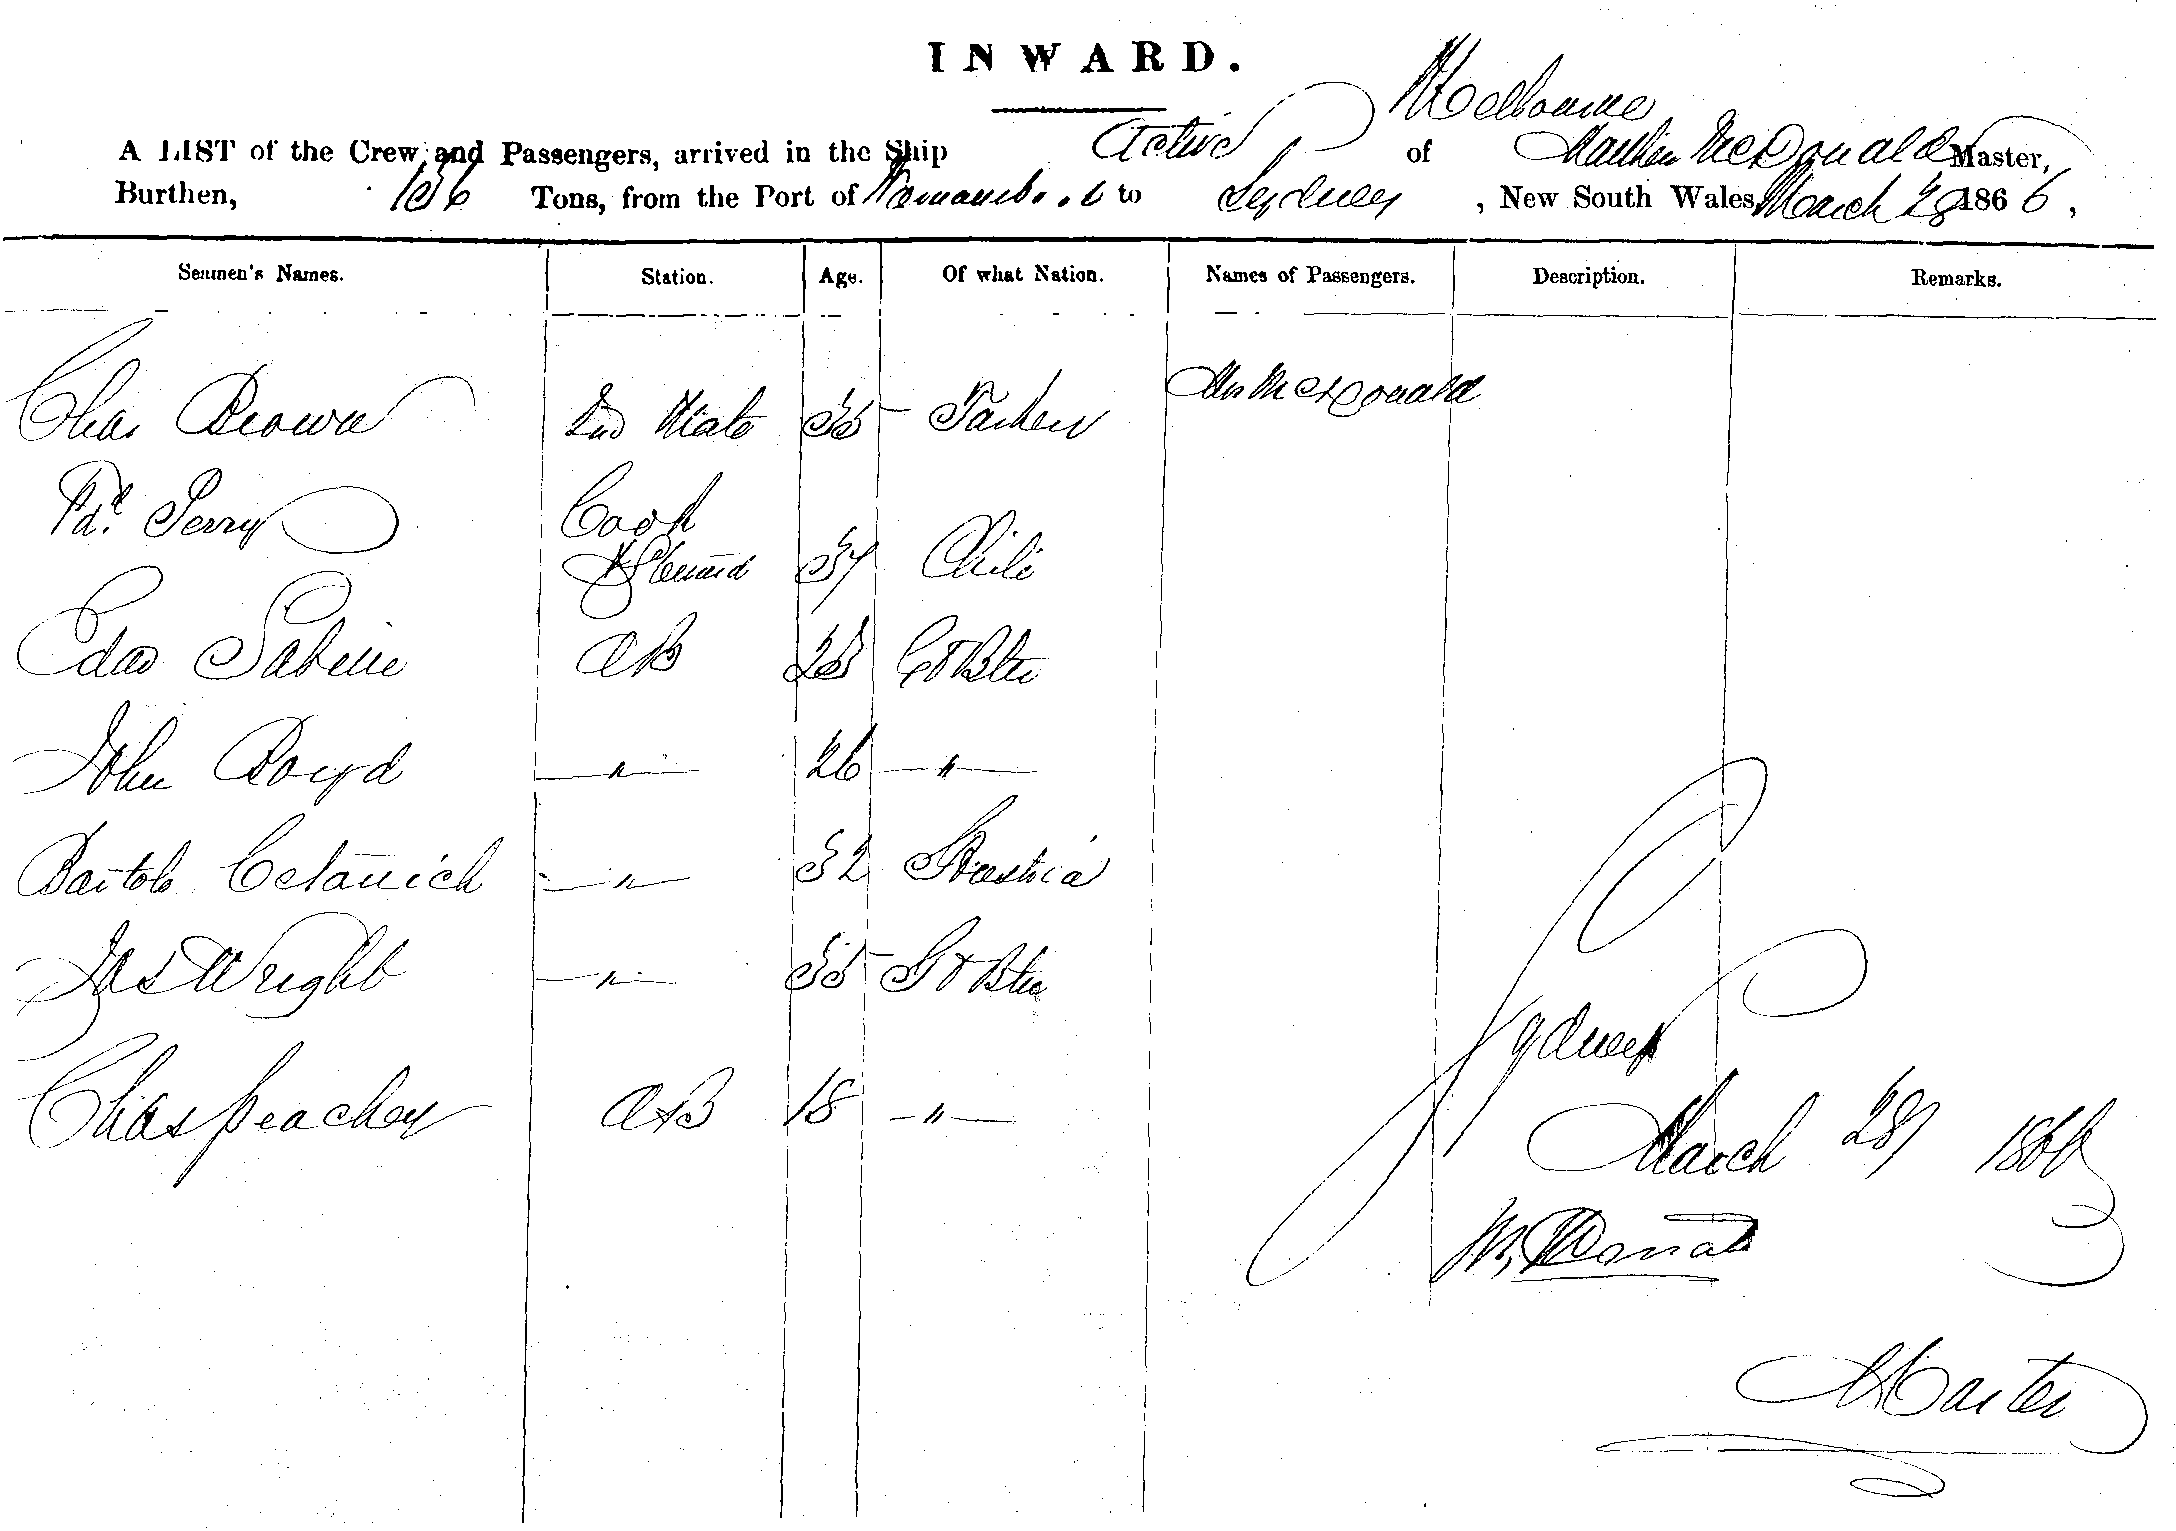 INWARD.
Melbourne
A LIST of the Crew and Passengers, arrived in the Ship Active of McDonald Master,
Burthen, 136 Tons, from the Port of to Sydney, New South Wales, March 28 1866,
Seamen's Names. Station. Age. Of what Nation. Names of Passengers. Description. Remarks.
Chas Brown 2nd Mate 35 Mrs McDonald
Perry Cook
& Steward 37 Chili
Edwd Sabine AB 28 Gt Btn
John Boyd " 26 "
Bartolo " 32 Austria
Jas Wright " 35 Gt Btn
Chas Peachey AB 18 "
Sydney
March 28/ 1866
M. McDonald
Master